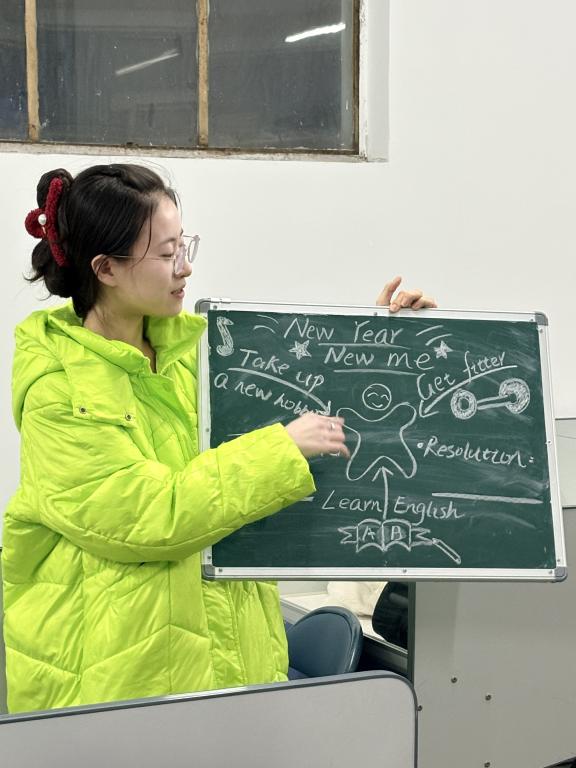 New Year
New me
Take up
a new hobby
Get fitter
• Resolution:
Learn English
A B